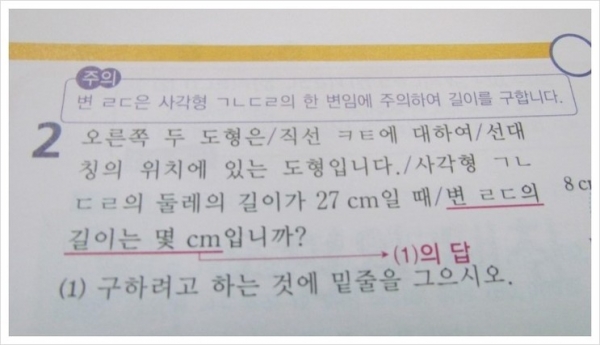 주의
변 ㄹㄷ은 사각형 ㄱㄴㄷㄹ의 한 변임에 주의하여 길이를 구합니다.
2 오른쪽 두 도형은/직선 ㅋㅌ에 대하여/선대
칭의 위치에 있는 도형입니다./사각형 ㄱㄴ
ㄷㄹ의 둘레의 길이가 27 cm일 때/변 ㄹㄷ의
8 cm
길이는 몇 cm입니까?
(1)의 답
(1) 구하려고 하는 것에 밑줄을 그으시오.